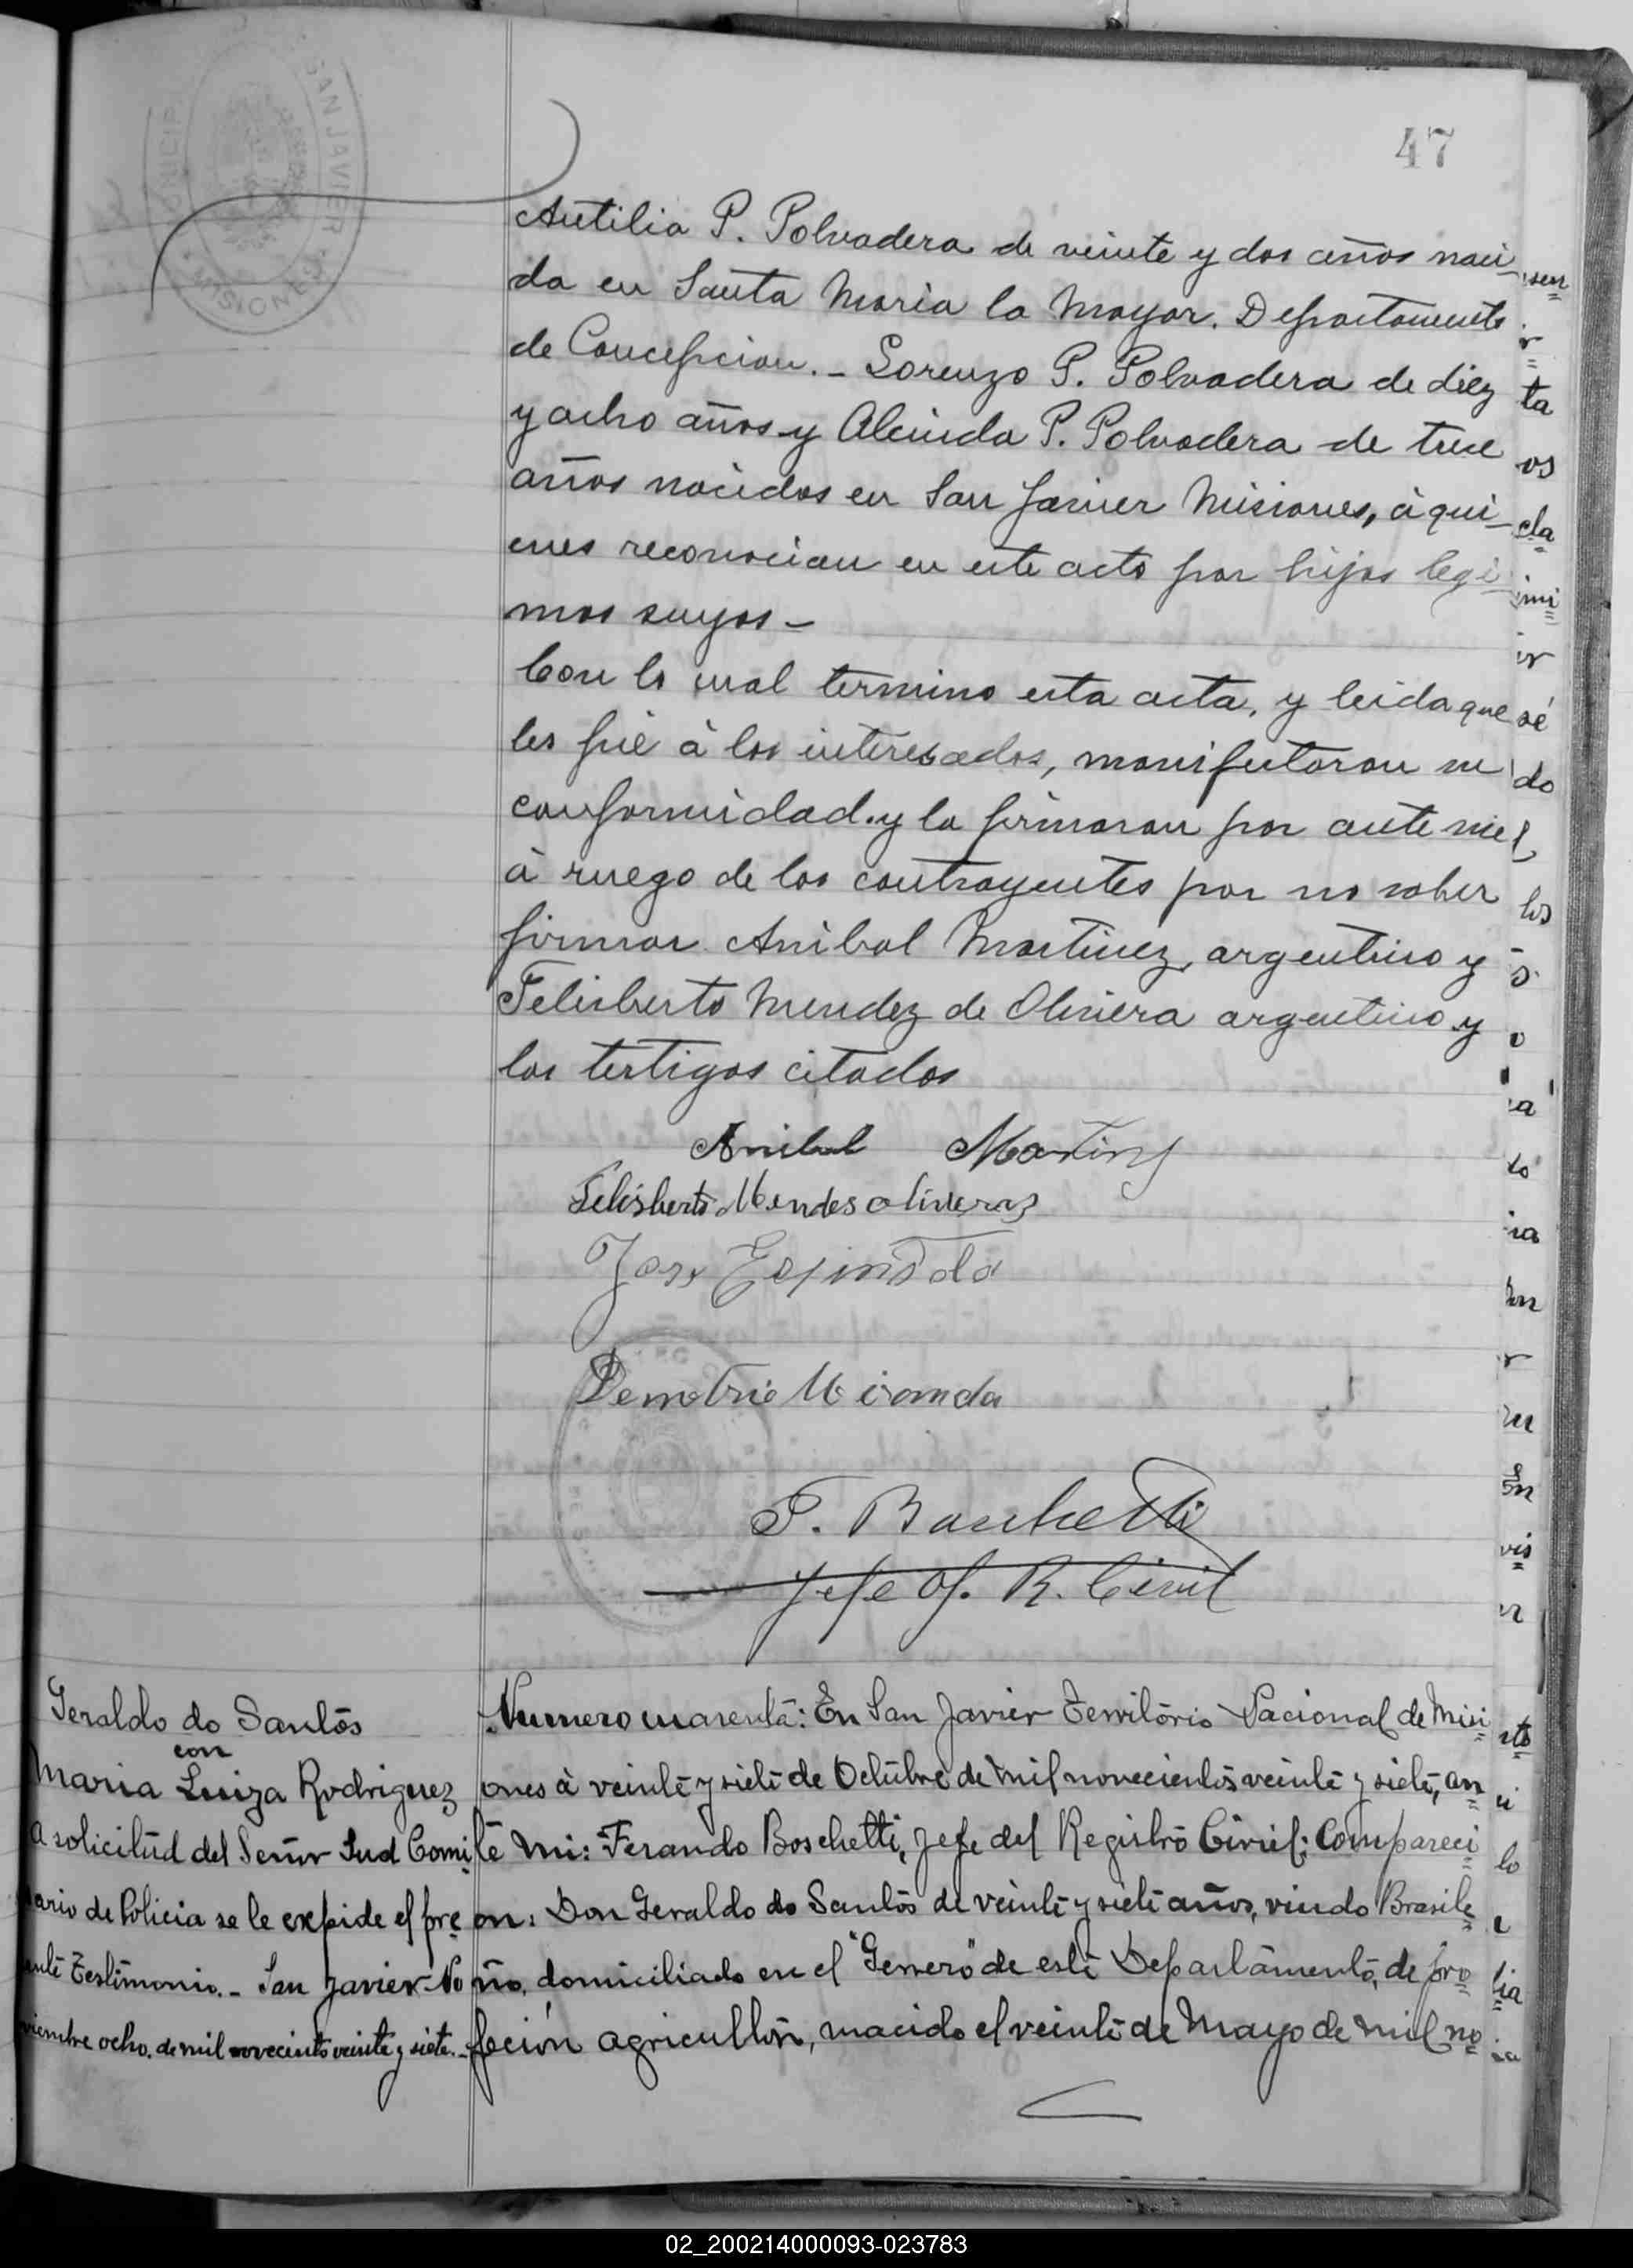 47
SAN JAVIER
MISIONES
Autilia P. Polvadera de veinte y dos años naci-
da en Santa Maria la Mayor. Departamento
de Concepcion. - Lorenzo P. Polvadera de diez
y ocho años y Alcinda P. Polvadera de trece
años nacidos en San Javier Misiones, à qui-
enes reconocian en este acto por hijos legi-
mos suyos -
Con lo cual termino esta acta, y leida que
les fué à los interesados, manifestaron su
conformidad. y la firmaron por ante mi
à ruego de los contrayentes por no saber
firmar Anibal Martinez, argentino y
Felisberto Mendez de Oliviera argentino y
los testigos citados
Anibal Martinz
Felisberto Mendes oliveraz
Jose Espindola
Demetrio Miranda
F. Boschetti
Jefe Of. R. Civil
Geraldo do Santos
con
Maria Luiza Rodriguez
A solicitud del Señor Sud Comi-
sario de Policia se le expide el pre-
sente Testimonio. - San Javier No
viembre ocho. de mil novecientos veinte y siete. -
Numero cuarenta: En San Javier Territorio Nacional de Misi-
ones à veinte y siete de Octubre de mil novecientos veinte y siete, an-
te mi: Ferando Boschetti, Jefe del Registro Civil: Compareci-
on: Don Geraldo do Santos de veinte y siete años, viudo Brasile-
ño, domiciliado en el "Gerrero" de este Departamento, de pro-
feción agricultor, nacido el veinte de Mayo de mil no-
02_200214000093-023783